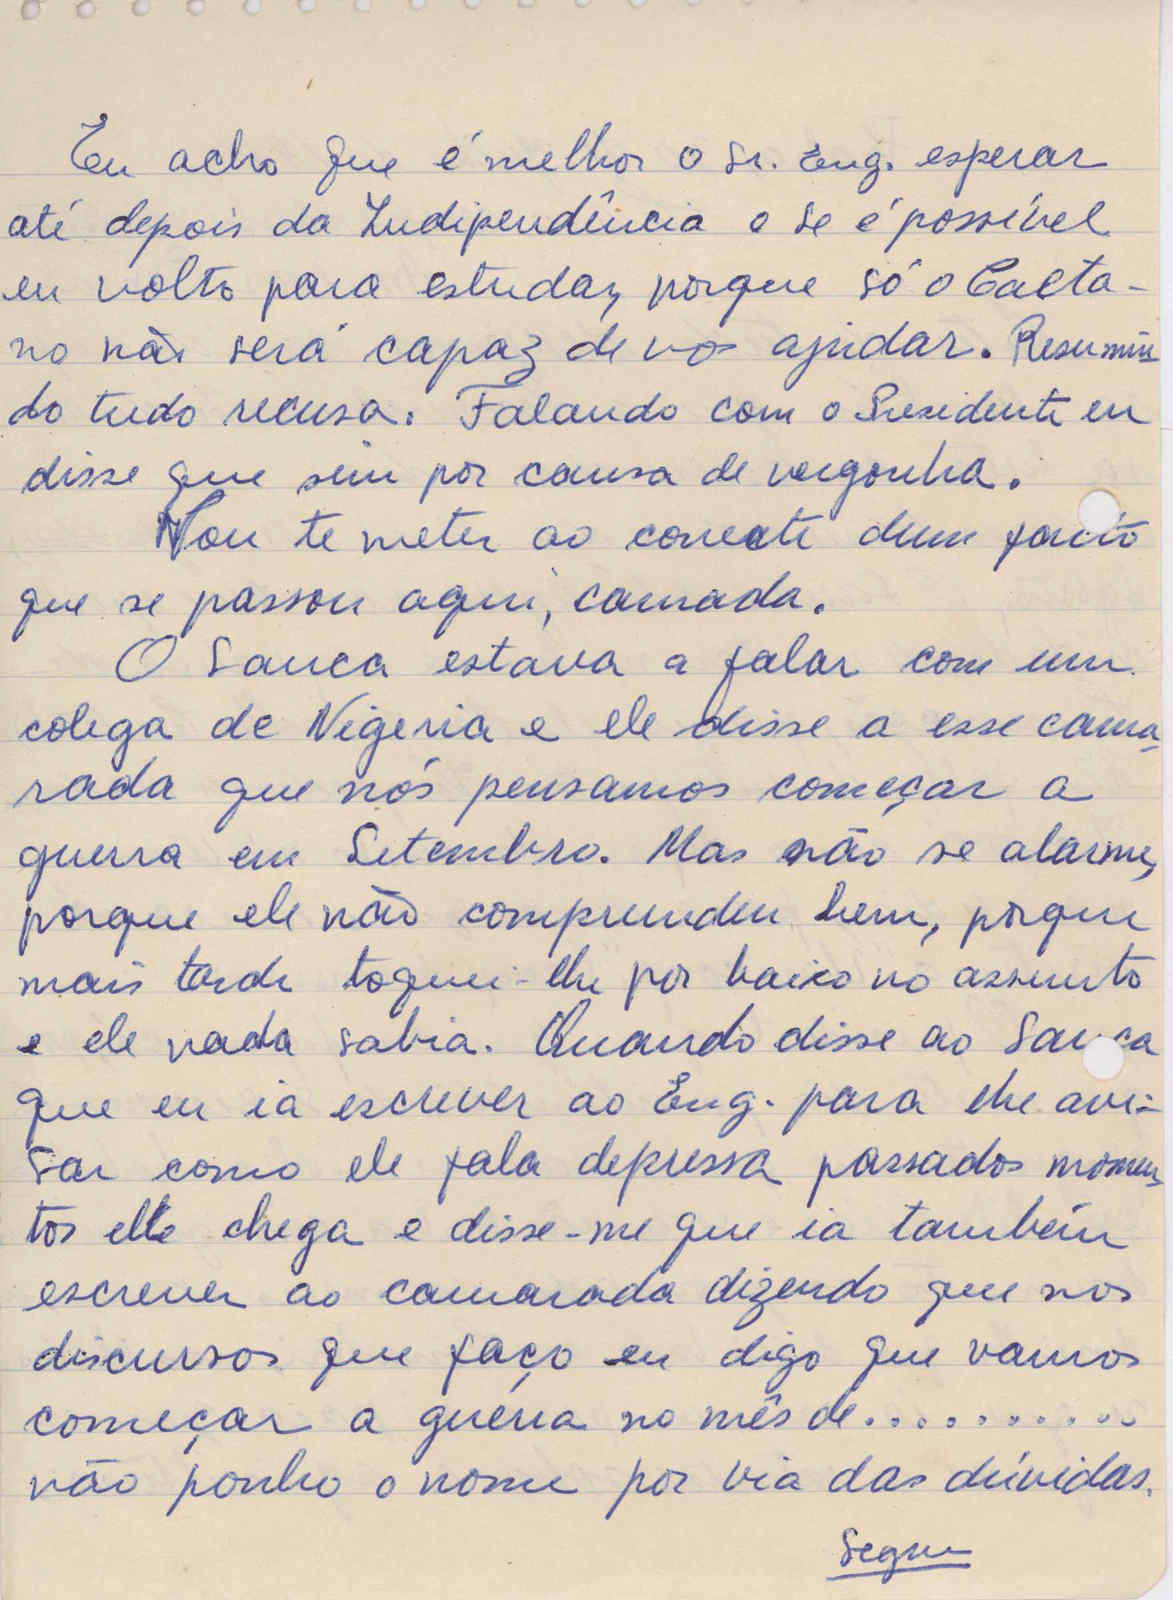 Eu acho que é melhor o Sr. Eng. esperar
até depois da Indipendência e se é possível
eu volto para estudar, porque só o Caeta-
no não será capaz de vos ajudar. Resumin-
do tudo recusa. Falando com o Presidente eu
disse que sim por causa de vergonha.
Vou te meter ao corrente dum facto
que se passou aqui, camada.
O Sanca estava a falar com um
colega de Nigeria e ele disse a esse cama-
rada que nós pensamos começar a
guerra em Setembro. Mas não se alarme,
porque ele não comprendeu bem, porque
mais tarde toquei-lhe por baixo no assunto
e ele nada sabia. Quando disse ao Sanca
que eu ia escrever ao Eng. para lhe avi-
sar como ele fala depressa passados momen-
tos elle chega e disse-me que ia também
escrever ao camarada dizendo que nos
discursos que faço eu digo que vamos
começar a guérra no mês de..........
não ponho o nome por via das dúvidas.
Segue